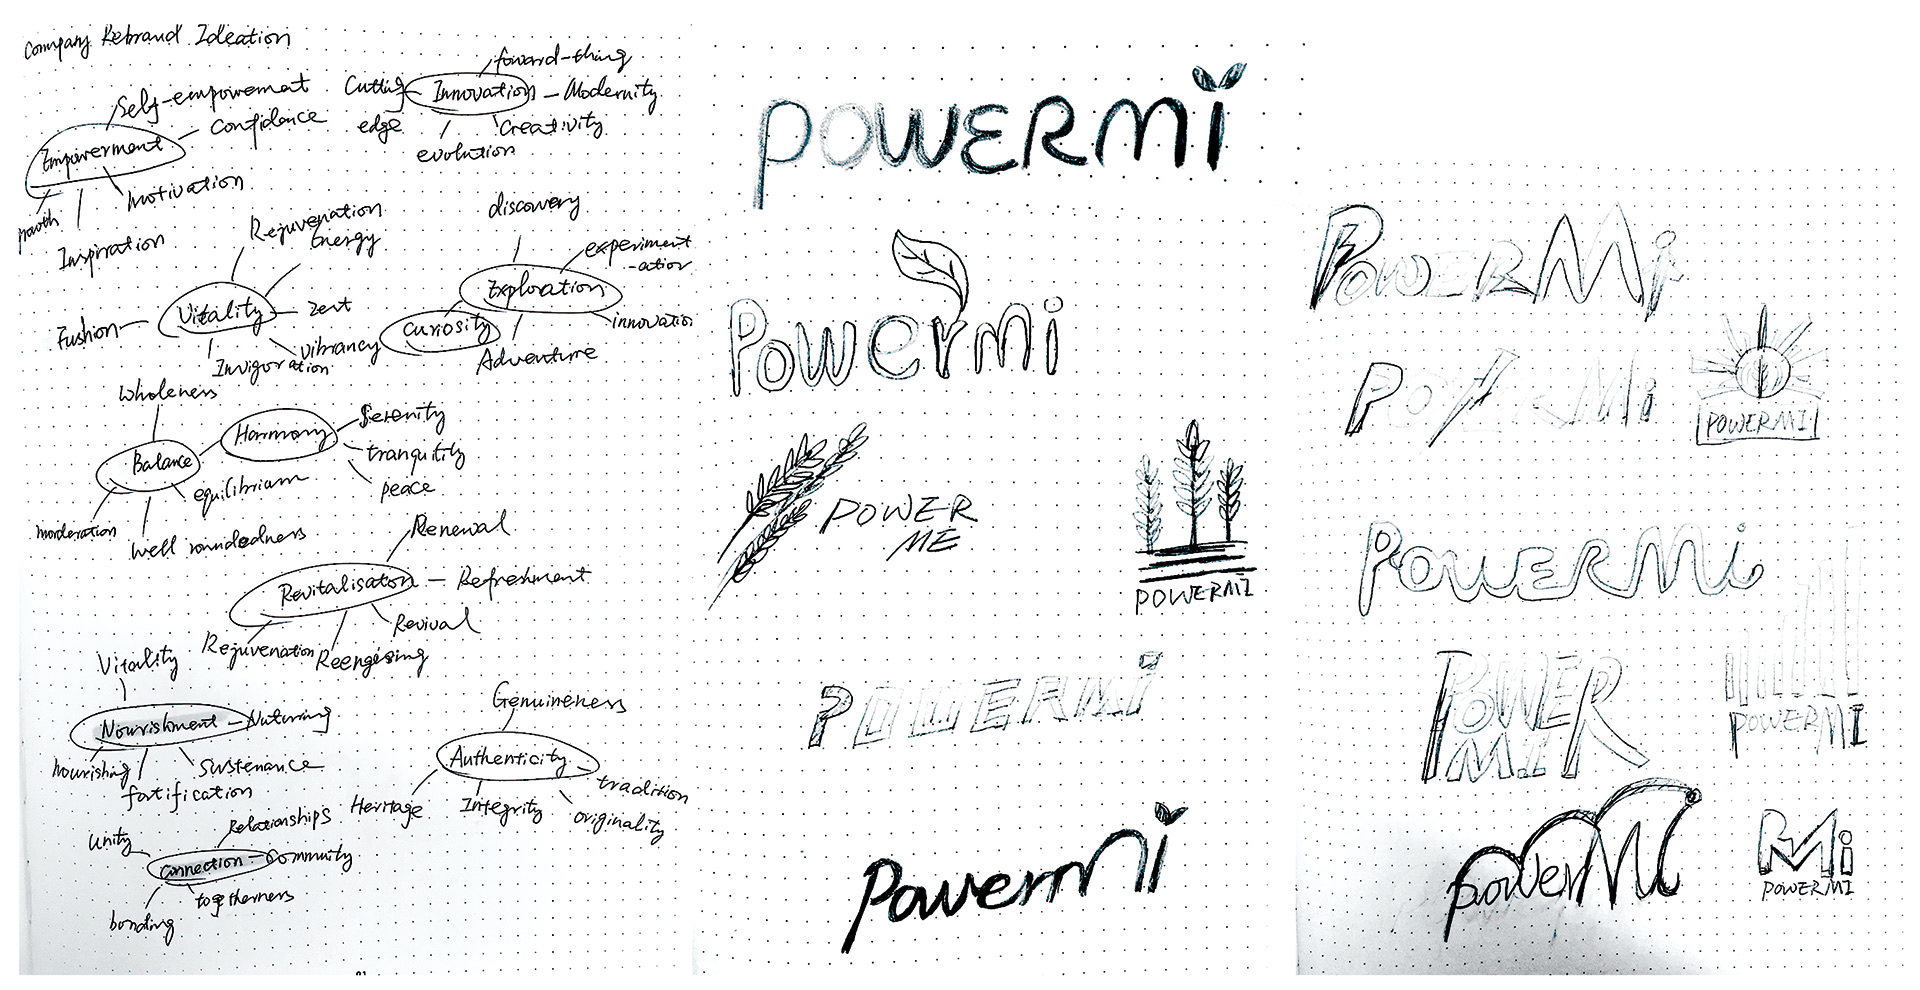 Company Rebrand Ideation
Self-empowement
Confidence
Empowerment
motivation
Inspiration
foward-thing
Cutting
edge
Innovation
Modernity
Creativity
evolution
Rejuvenation
Energy
Vitality
Fushion
zent
vibrancy
Invigoration
discovery
experiment
-ation
Exploration
Curiosity
innovation
Adventure
Wholeness
Balance
Harmony
Serenity
tranquility
peace
equilibrium
morderation
well roundedness
Renewal
Revitalisaton
Refreshment
Revival
Rejuvenation
Vitality
Nourishment
Nuturing
nourishing
fortification
sustenance
Genuineness
Authenticity
tradition
Heritage
Integrity
originality
Relationships
Unity
Connection
Community
togetherness
bonding
POWERMi
Powermi
POWER
ME
POWERMI
POWERMi
Powermi
POWERMi
POWERMi
POWERMI
POWERMi
POWER
MI
POWERMI
powerMi
PMi
POWERMI